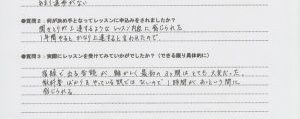 ●質問2：何が決め手となってレッスンに申込みをされましたか？
間がとりが上達するようなレッスン内容に感じられた
1年間やるとかなり上達すると言われたので。
●質問3：実際にレッスンを受けてみていかがでしたか？（できる限り具体的に）
宿題で出る音読が難かしく最初の3ヶ月はとても大変だった。
教科書ばかりをやっている訳ではないので1時間があっという間に
感じられる。